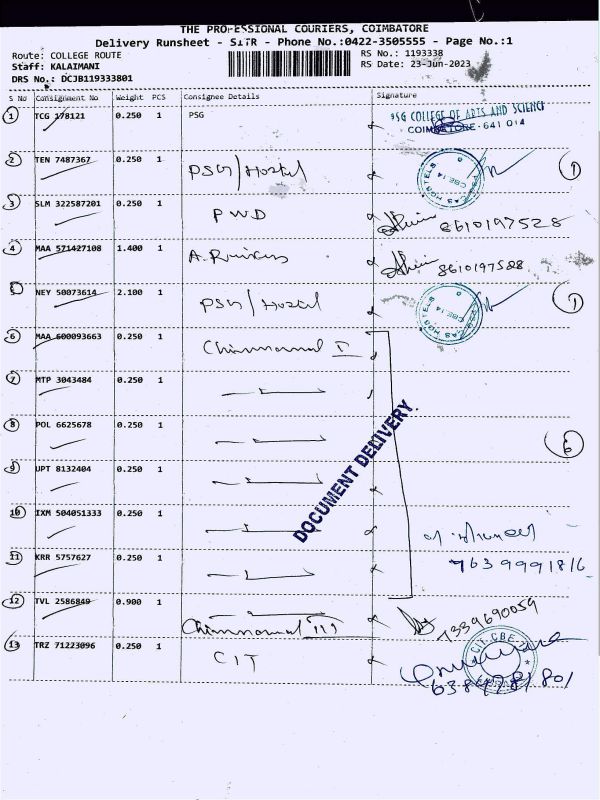 THE PROFESSIONAL COURIERS, COIMBATORE
Delivery Runsheet - SITR - Phone No.:0422-3505555 - Page No.:1
Route: COLLEGE ROUTE
Staff: KALAIMANI
DRS No.: DCJB119333801
RS No.: 1193338
RS Date: 23-Jun-2023
S No Consignment No Weight PCS Consignee Details Signature
1 TCG 178121 0.250 1 PSG
PSG COLLEGE OF ARTS AND SCIENCE
COIMBATORE - 641 014
2 TEN 7487367 0.250 1 PSG/Hostel 1
3 SLM 322587201 0.250 1 PWD 8610197528
4 MAA 571427108 1.400 1 8610197528
5 NEY 50073614 2.100 1 PSG/Hostel 1
6 MAA 600093663 0.250 1 Chinnammal I
7 MTP 3043484 0.250 1
8 POL 6625678 0.250 1 6
9 UPT 8132404 0.250 1
DOCUMENT DELIVERY
10 IXM 504051333 0.250 1
11 KRR 5757627 0.250 1 7639991816
12 TVL 2586849 0.900 1 Chinnammal III 7339690059
13 TRZ 71223096 0.250 1 CIT